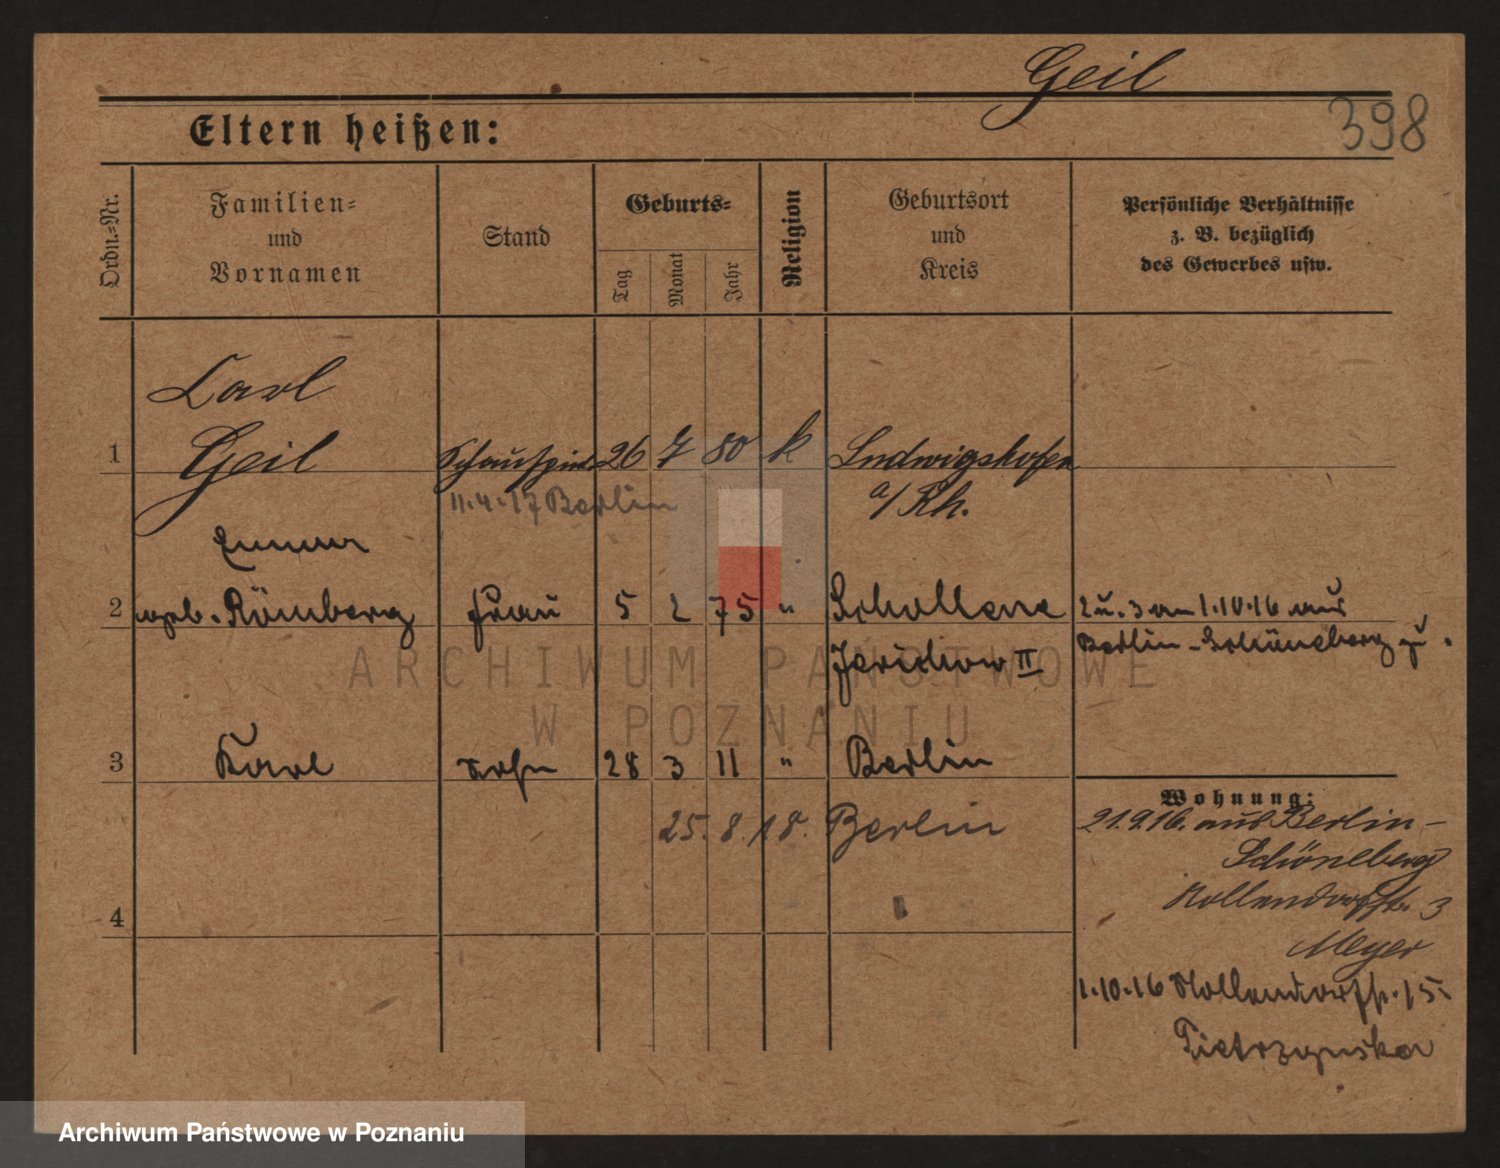 Geil
398
Eltern heißen:
Ordn.=Nr.
Familien=
und
Vornamen
Stand
Geburts=
Tag
Monat
Jahr
Religion
Geburtsort
und
Kreis
Persönliche Verhältnisse
z. B. bezüglich
des Gewerbes usw.
Carl
1 Geil Schauspiel. 26 7 80 k Ludwigshofen
11.4.17 Berlin a/Rh.
Emma
2 geb. Römberg Frau 5 2 75 " Schollene 2 u. 3 am 1.10.16 aus
Jerichow II Berlin-Schöneberg zu.
3 Karl Sohn 28 3 11 " Berlin
25.8.18. Berlin
4
Wohnung:
21.9.16. aus Berlin-
Schöneberg
Nollendorfstr. 3
Meyer
1.10.16 Nollendorfstr. 15
Pietrzynska
ARCHIWUM PAŃSTWOWE
W POZNANIU
Archiwum Państwowe w Poznaniu